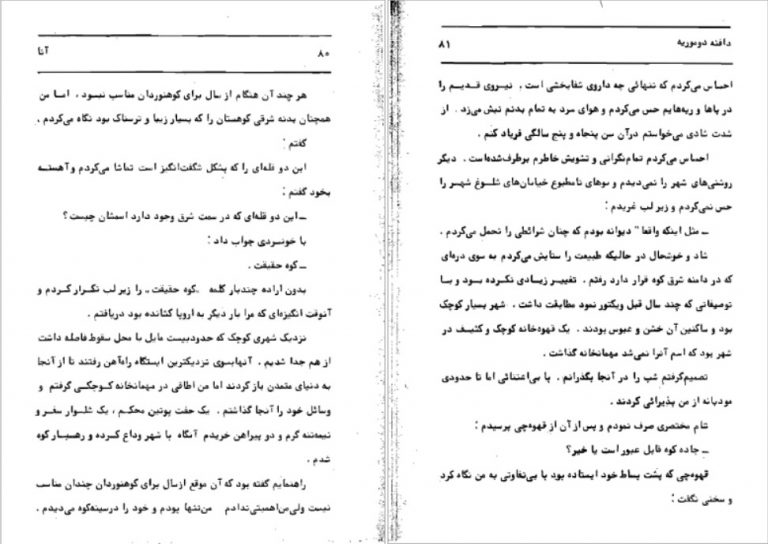 آنا ۸۰
هر چند آن هنگام از سال برای کوهنوردان مناسب نبود ، اما من
همچنان بدنه شرقی کوهستان را که بسیار زیبا و ترسناک بود نگاه می‌کردم ،
گفتم :
این دو قله‌ای را که بشکل شگفت‌انگیز است تماشا می‌کردم و آهسته
بخود گفتم :
ــ این دو قله‌ای که در سمت شرق وجود دارد اسمشان چیست ؟
با خونسردی جواب داد :
ــ کوه حقیقت .
بدون اراده چندبار کلمه «کوه حقیقت» را زیر لب تکرار کردم و
آنوقت انگیزه‌ای که مرا بار دیگر به اروپا کشانده بود دریافتم .
نزدیک شهری کوچک که حدود بیست مایل با محل سقوط فاصله داشت
از هم جدا شدیم . آنها بسوی نزدیکترین ایستگاه راه‌آهن رفتند تا از آنجا
به دنیای متمدن باز گردند اما من اطاقی در مهمانخانه کوچکی گرفتم و
وسائل خود را آنجا گذاشتم . یک جفت پوتین محکم ، یک شلوار سفر و
نیم‌تنه گرم و دو پیراهن خریدم آنگاه با شهر وداع کرده و رهسپار کوه
شدم .
راهنمایم گفته بود که آن موقع از سال برای کوهنوردان چندان مناسب
نیست ولی من اهمیتی ندادم من تنها بودم و خود را در سینه کوه می‌دیدم .
دافنه دوموریه ۸۱
احساس می‌کردم که تنهائی چه داروی شفابخشی است . نیروی قدیم را
در پاها و ریه‌هایم حس می‌کردم و هوای سرد به تمام بدنم نیش می‌زد . از
شدت شادی می‌خواستم در آن سن پنجاه و پنج سالگی فریاد کنم .
احساس می‌کردم تمام نگرانی و تشویش خاطرم برطرف شده است . دیگر
روشنی‌های شهر را نمی‌دیدم و بوهای نامطبوع خیابان‌های شلوغ شهر را
حس نمی‌کردم و زیر لب غریدم :
ــ مثل اینکه واقعا" دیوانه بودم که چنان شرائطی را تحمل می‌کردم .
شاد و خوشحال در حالیکه طبیعت را ستایش می‌کردم به سوی دره‌ای
که در دامنه شرق کوه قرار دارد رفتم . تغییر زیادی نکرده بود و با
توصیفاتی که چند سال قبل ویکتور نمود مطابقت داشت . شهر بسیار کوچک
بود و ساکنین آن خشن و عبوس بودند . یک قهوه‌خانه کوچک و کثیف در
شهر بود که اسم آنرا نمی‌شد مهمانخانه گذاشت .
تصمیم گرفتم شب را در آنجا بگذرانم . با بی‌اعتنائی اما تا حدودی
مودبانه از من پذیرائی کردند .
شام مختصری صرف نمودم و پس از آن از قهوه‌چی پرسیدم :
ــ جاده کوه قابل عبور است یا خیر؟
قهوه‌چی که پشت بساط خود ایستاده بود با بی‌تفاوتی به من نگاه کرد
و سختی نگفت :